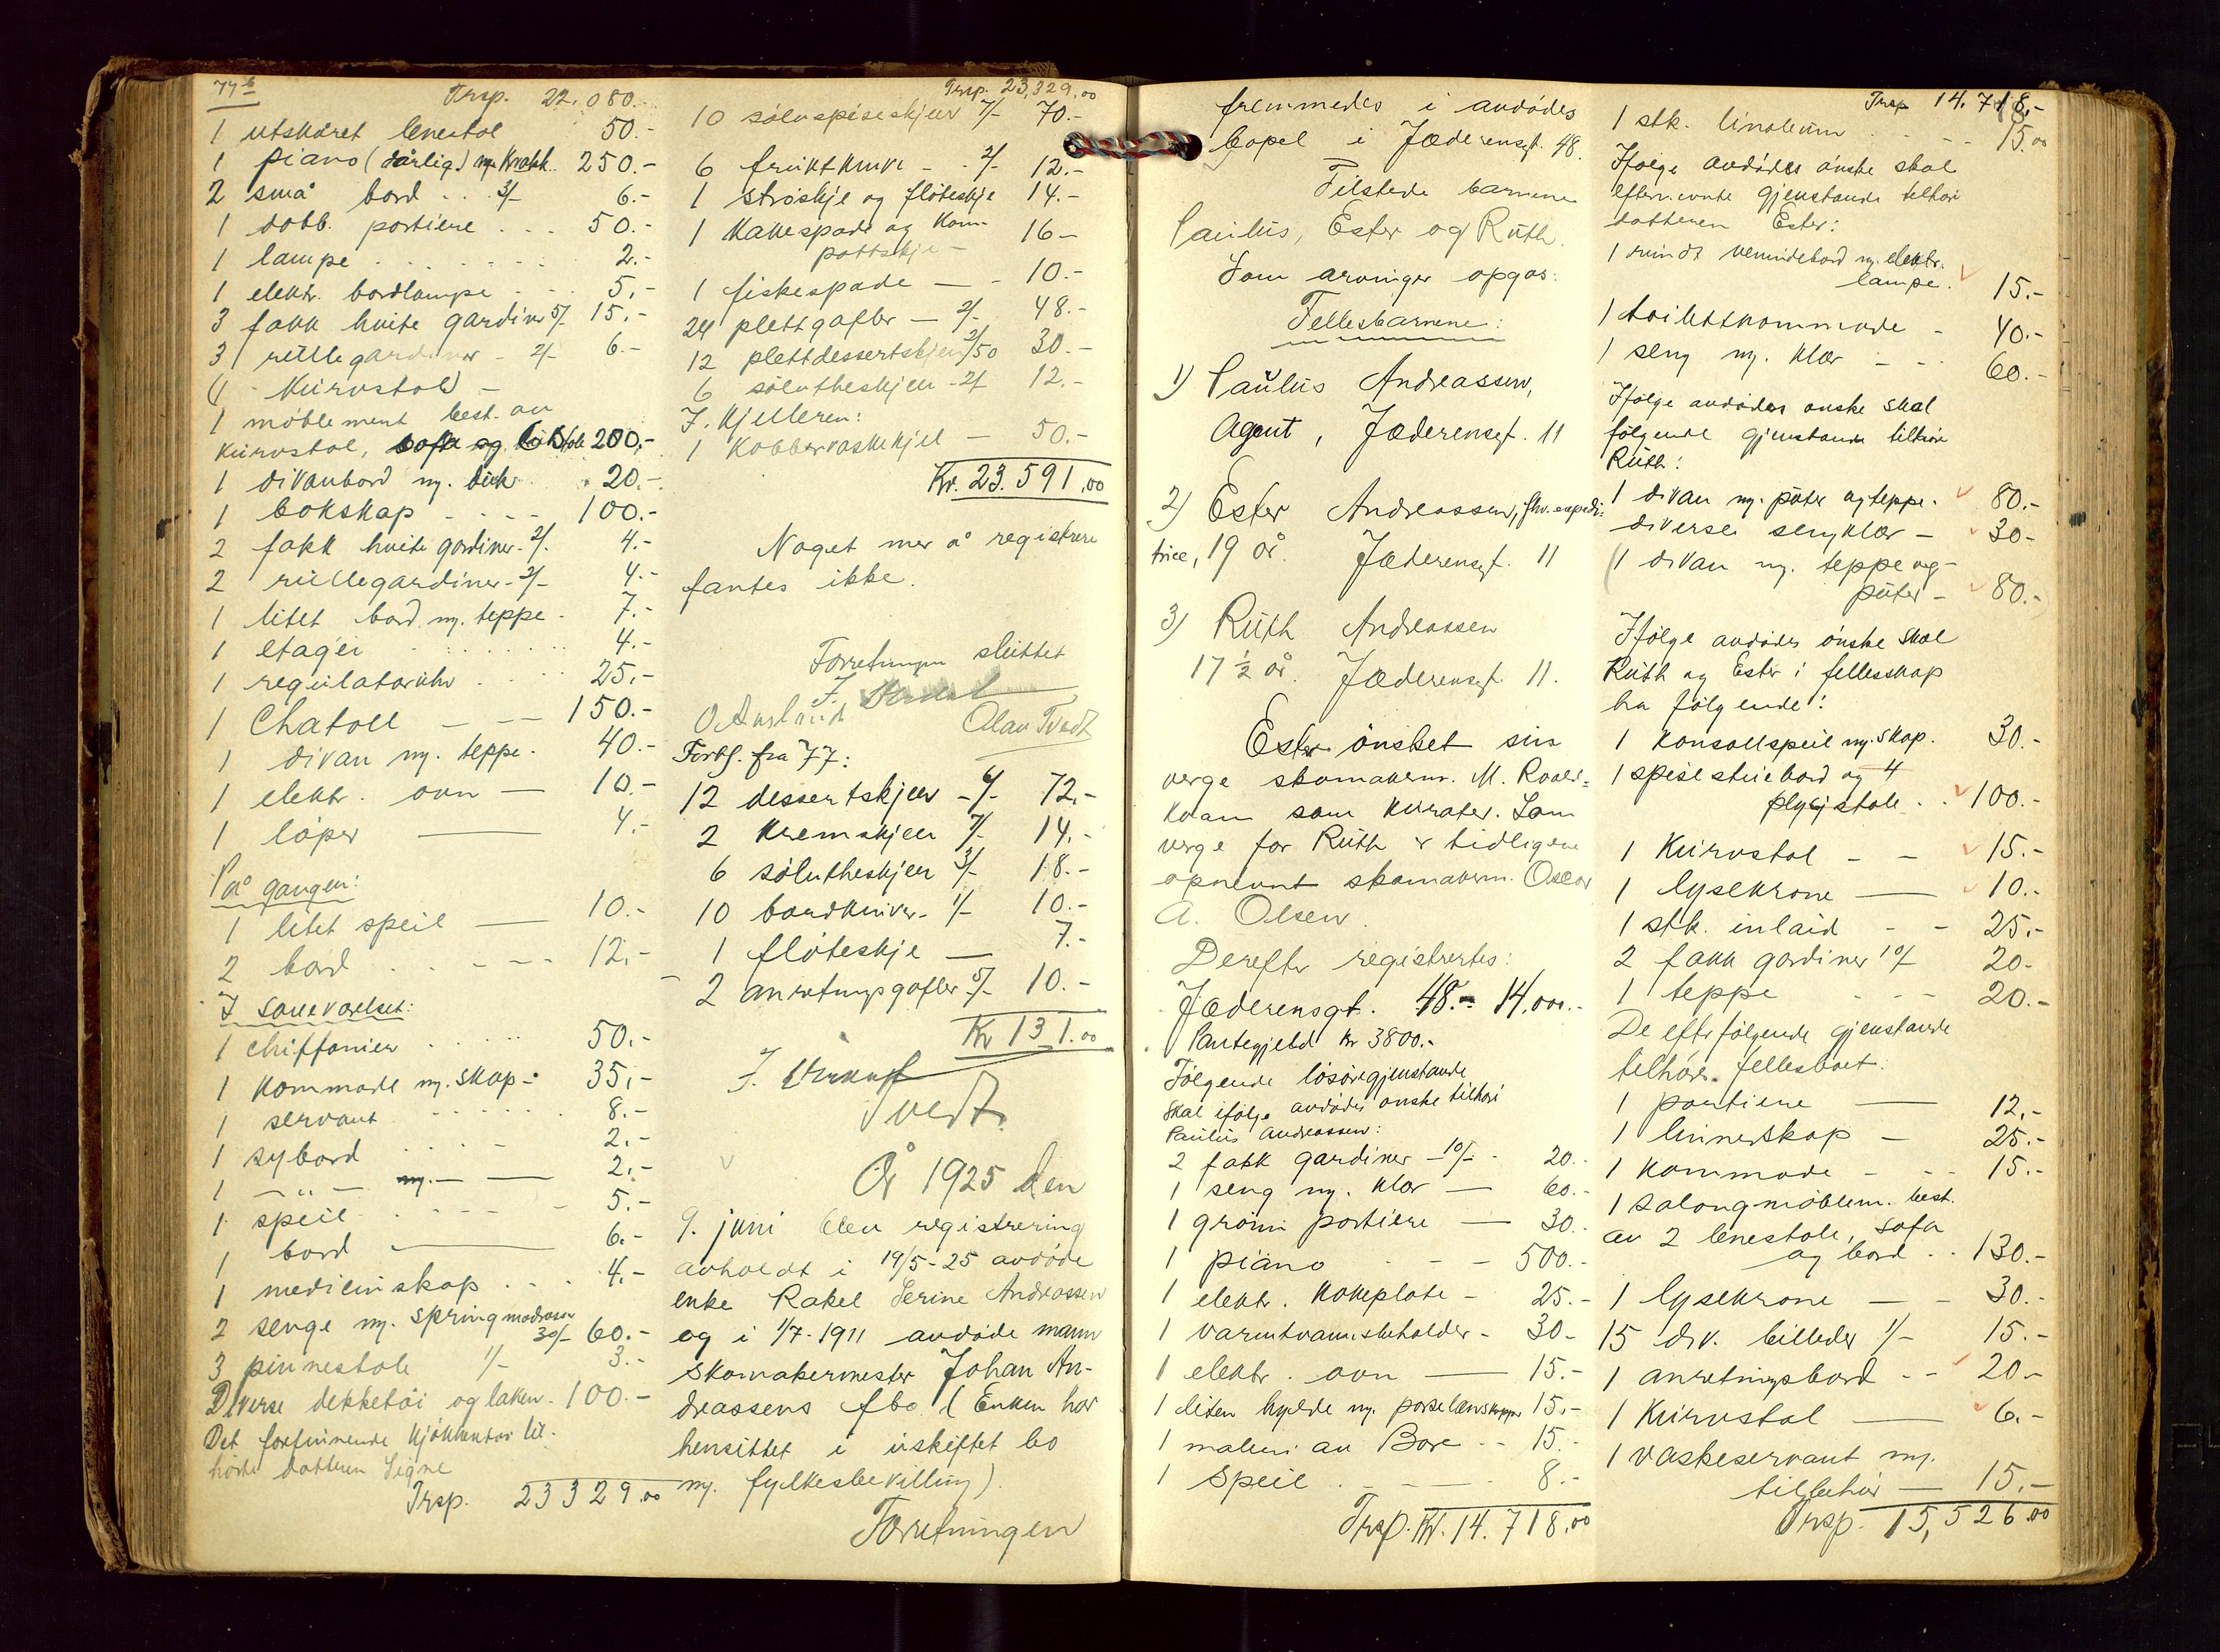 77b
Trsp. 22.080.-
1 utskåret lenestol 50.-
1 piano (dårlig) m. krakk. 250.-
2 små bord . . 3/- 6.-
1 dobb. portiere . . . 50.-
1 lampe . . . . . . . 2.-
1 elektr. bordlampe - - - 5.-
3 fakk hvite gardiner 5/- 15.-
3 rullegardiner - 2/- 6.-
(1 - Kurvstol) -
1 møblement best. av
kurvstol, sofa og 200.-
1 divanbord m. duk . . 20.-
1 bokskap - - - - 100.-
2 fakk hvite gardiner - 2/- 4.-
2 rullegardiner - 2/- 4.-
1 litet bord m. teppe - 7.-
1 etager . . . . . . . 4.-
1 regulatoruhr . . . . 25.-
1 Chatoll - - - 150.-
1 divan m. teppe - 40.-
1 elektr. ovn - 10.-
1 løper - 4.-
På gangen:
1 litet speil - 10.-
2 bord . . - - - - 12.-
I soveværelset:
1 chiffonier . . . . . 50.-
1 kommode m. skap - 35.-
1 servant . . . . . . 8.-
1 sybord . . . . - 2.-
1 - " - m. - - 2.-
1 speil . . - - - - 5.-
1 bord - 6.-
1 medicinskap . . . . 4.-
2 senge m. springmadrasser
30/- 60.-
3 pinnestole 1/- 3.-
Diverse dekketøi og laken - 100.-
Det forefinnende kjøkkentøi til-
hører datteren Signe
Trsp. 23329.00
Trsp. 23,329.00
10 sølvspiseskjeer 7/- 70.-
6 fruktknive - - 2/- 12.-
1 strøskje og fløteskje 14.-
1 Kakespade og kom-
pottskje - 16-
1 fiskespade - - 10.-
24 plettgafler - 2/- 48.-
12 plettdessertskjeer 2/50 30.-
6 sølvtheskjeer - 2/- 12.-
I. Kjelleren:
1 Kobbervaskekjel - 50.-
Kr. 23.591,00
Noget mer å registrere
fantes ikke.
Forretningen sluttet
J.
O Austbund Olav Tvedt
Forts. fra 77:
12 dessertskjeer - 6/- 72.-
2 Kremskjeer 7/- 14.-
6 sølvtheskjeer 3/- 18.-
10 bordkniver - 1/- 10.-
1 fløteskje - 7.-
2 anretningsgafler 5/- 10.-
Kr 131.00
J.
Tvedt
År 1925 den
9. juni blev registrering
avholdt i 19/5-25 avdøde
enke Rakel Serine Andreassen
og i 1/7-1911 avdøde mann
skomakermester Johan An-
dreassens fbo (Enken har
hensittet i uskiftet bo
m. fylkesbevilling).
Forretningen
fremmedes i avdødes
bopel i Jæderensgt. 48.
Tilstede barnene
Paulus, Ester og Ruth.
Som arvinger opgas:
Fellesbarnene:
1) Paulus Andreassen,
Agent, Jæderensgt. 11
2) Ester Andreassen, fhv. expedi-
trice, 19 år. Jæderensgt. 11
3) Ruth Andreassen
17 1/2 år. Jæderensgt. 11.
Ester ønsket sin
verge skomakerm. M. Rover-
kvam som kurator. Som
verge for Ruth er tidligere
opnevnt skomakerm. Oscar
A. Olsen.
Derefter registrertes:
Jæderensgt. 48.- 14,000.-
Pantegjeld kr 3800.-
Følgende løsøregjenstande
skal ifølge avdødes ønske tilhøre
Paulus Andreassen:
2 fakk gardiner - 10/- - 20.-
1 seng m. klær - 60.-
1 grønn portiere - 30.-
1 piano - - - 500.-
1 elektr. kokeplate - 25.-
1 varmtvannsbeholder - 30-
1 elektr. ovn - 15.-
1 liten hylde m. porselenskopper 15.-
1 maleri av Bore - - 15.-
1 Speil . - - - - 8.-
Trsp. Kr. 14.718.00
Trsp 14.718,-
1 stk. linoleum . . - - 15.00
Ifølge avdødes ønske skal
efternevnte gjenstande tilhøre
datteren Ester:
1 rundt venindebord m. elektr.
lampe. 15.-
1 toilettkommode - 40.-
1 seng m. klær - - - 60.-
Ifølge avdødes ønske skal
følgende gjenstande tilhøre
Ruth:
1 divan m. puter og teppe. 80.-
diverse sengklær - 30-
(1 divan m. teppe og
puter - 80.-)
Ifølge avdødes ønske skal
Ruth og Ester i fellesskap
ha følgende:
1 konsollspeil m. skap. 30.-
1 spisestuebord og 4
plysjstole . . 100.-
1 Kurvstol - - 15.-
1 lysekrone - 10.-
1 stk. inlaid - - 25.-
2 fakk gardiner 10/- 20.-
1 teppe - - - 20.-
De efterfølgende gjenstande
tilhører fellesboet:
1 portiere - 12.-
1 linnetskap - 25.-
1 kommode - - - 15.-
1 salongmøblem. best.
av 2 lenestole, sofa
og bord . . 130.-
1 lysekrone - - 30.-
15 div. billeder 1/- 15.-
1 anretningsbord - - 20.-
1 Kurvstol - 6.-
1 vaskeservant m.
tilbehør - 15.-
Trsp. 15,526.00